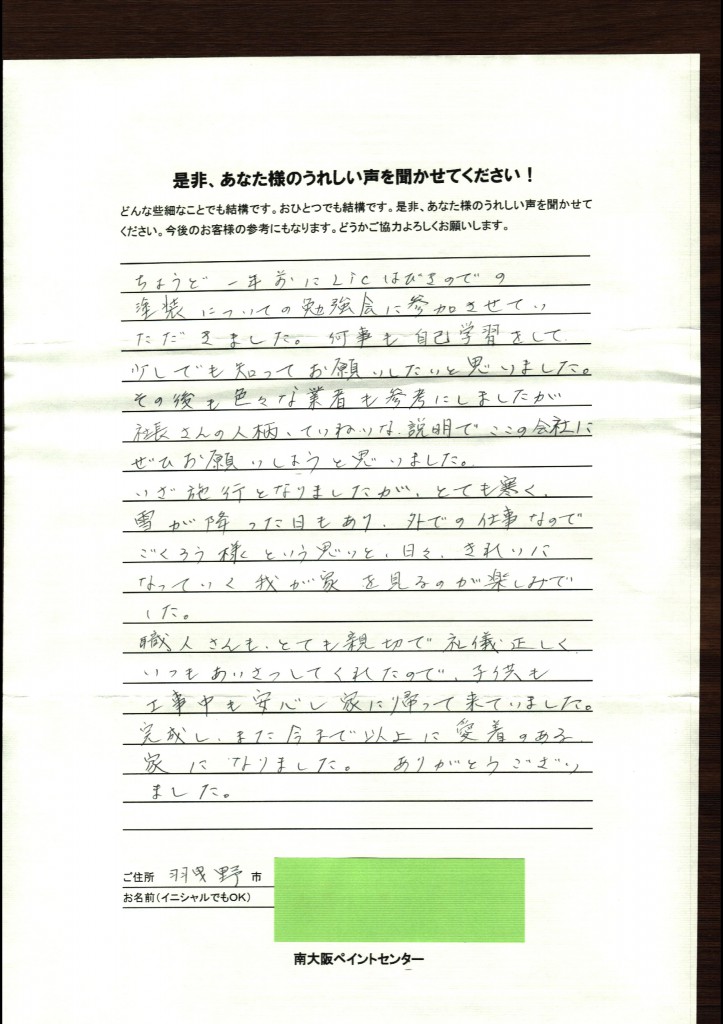 是非、あなた様のうれしい声を聞かせてください！
どんな些細なことでも結構です。おひとつでも結構です。是非、あなた様のうれしい声を聞かせて
ください。今後のお客様の参考にもなります。どうかご協力よろしくお願いします。
ちょうど 一年前にLicはびきのでの
塗装についての勉強会に参加させてい
ただきました。何事も自己学習をして
少しでも知ってお願いしたいと思いました。
その後も色々な業者も参考にしましたが
社長さんの人柄、ていねいな説明でここの会社に
ぜひお願いしようと思いました。
いざ施行となりましたが、とても寒く、
雪が降った日もあり、外での仕事なので
ごくろう様という思いと、日々、きれいに
なっていく我が家を見るのが楽しみで
した。
職人さんも、とても親切で礼儀正しく
いつもあいさつしてくれたので、子供も
工事中も安心し家に帰って来ていました。
完成し、また今まで以上に愛着のある
家になりました。 ありがとうござい
ました。
ご住所 羽曳野 市
お名前（イニシャルでもOK）
南大阪ペイントセンター